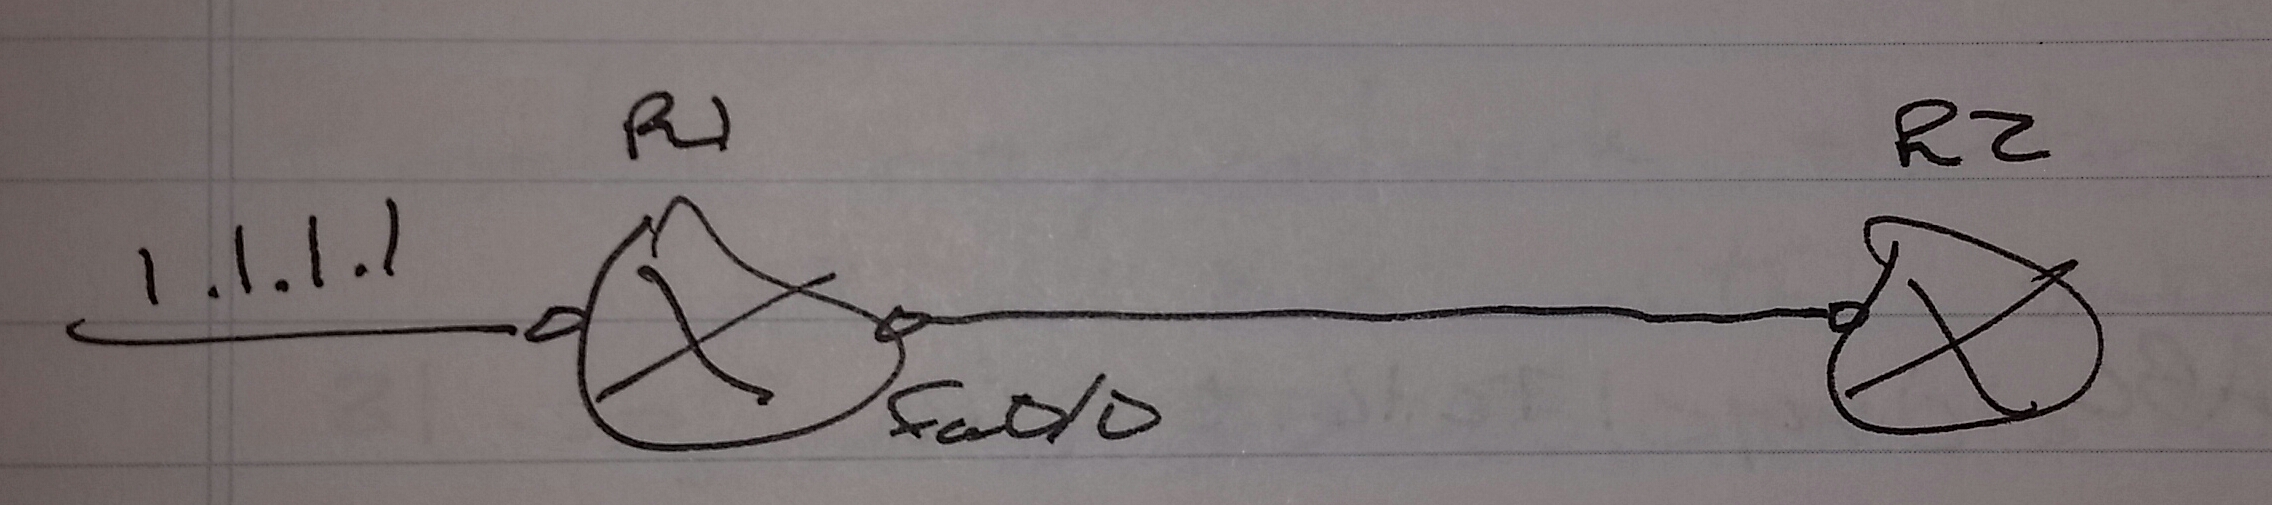 R1
R2
1.1.1.1
Fa0/0